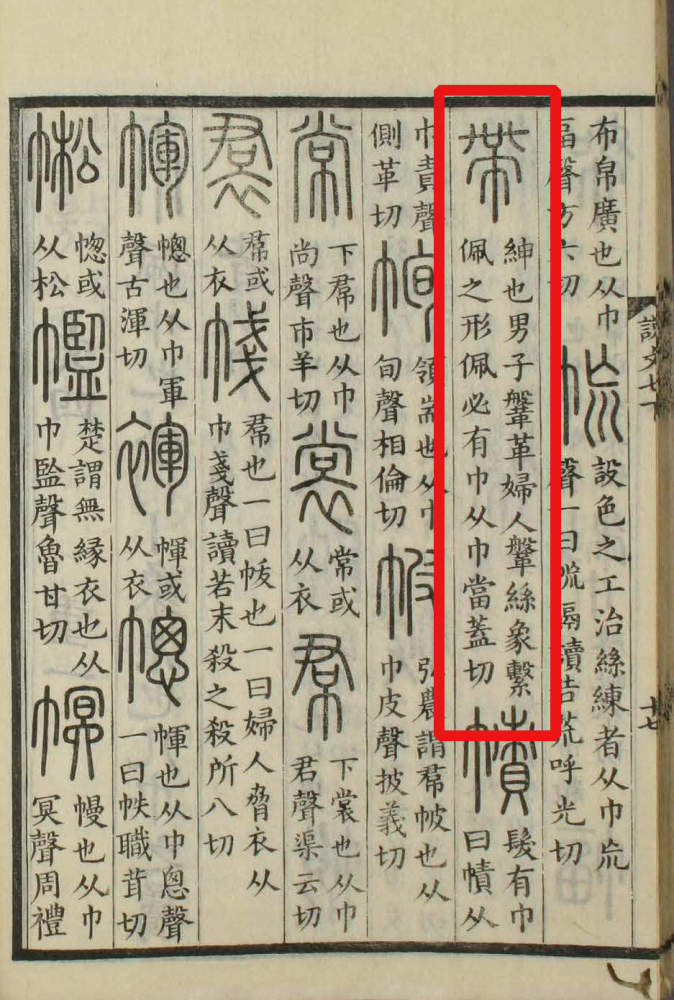 布帛廣也从巾
畐聲方六切
㡆
設色之工治絲練者从巾㡃
聲一曰㡆隔讀若荒呼光切
說文七下
廿七
帶
紳也男子鞶革婦人鞶絲象繫
佩之形佩必有巾从巾當蓋切
幘
髮有巾
曰幘从
巾責聲
側革切
領耑也从巾
旬聲相倫切
帔
弘農謂帬帔也从
巾皮聲披義切
常
下帬也从巾
尚聲市羊切
裳
常或
从衣
帬
下裳也从巾
君聲渠云切
裠
帬或
从衣
帴
帬也一曰帗也一曰婦人脅衣从
巾戔聲讀若末殺之殺所八切
㡓
幒也从巾軍
聲古渾切
褌
㡓或
从衣
幒
㡓也从巾悤聲
一曰帙職茸切
幒或
从松
楚謂無緣衣也从
巾監聲魯甘切
幎
幔也从巾
冥聲周禮